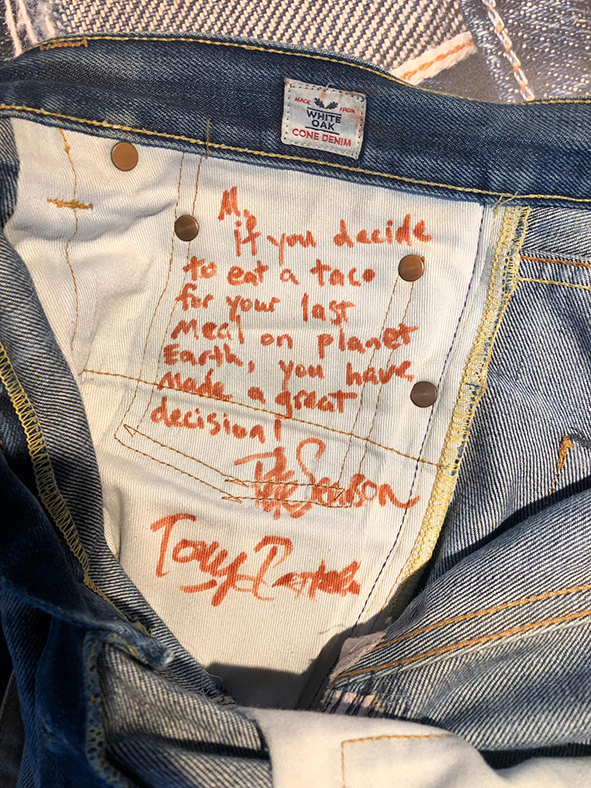 MADE FROM
WHITE
OAK
CONE DENIM
M,
if you decide
to eat a taco
for your last
meal on planet
Earth, you have
made a great
decision!
Tony